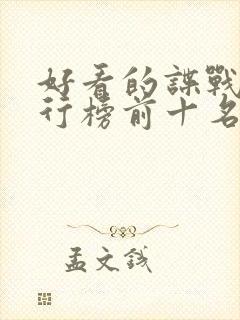 好看的諜戰
行榜前十名
孟文錢